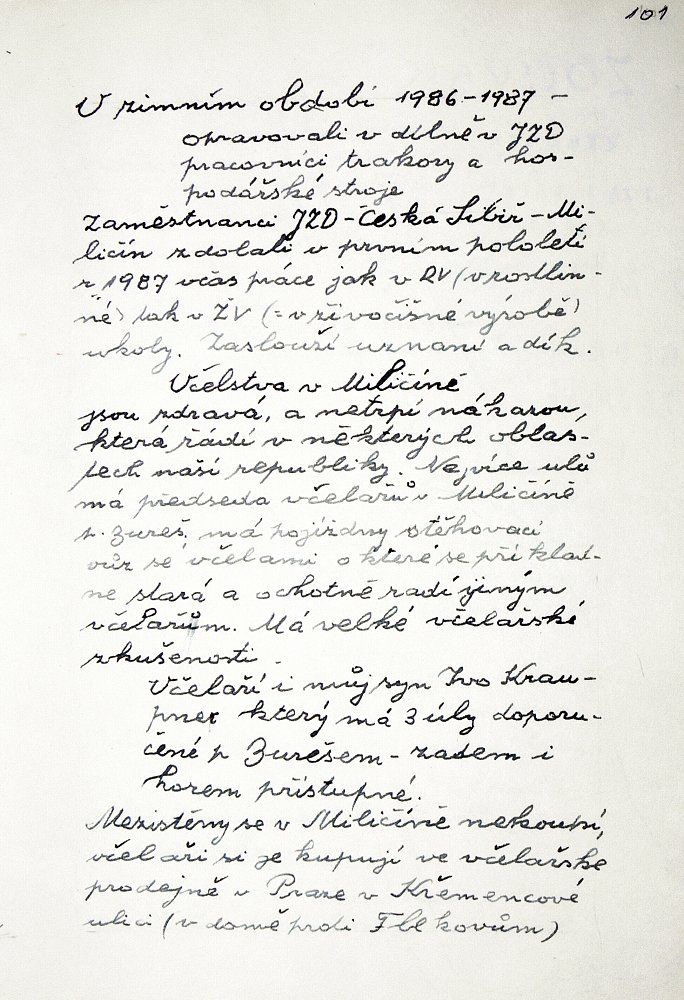 101
V zimním období 1986-1987 -
opravovali v dílně v JZD
pracovníci trakory a hos-
podářské stroje
Zaměstnanci JZD - Česká Sibiř - Mi-
ličín zdolali v prvním pololetí
r 1987 včas práce jak v RV (v rostlin-
né) tak v ŽV (= v živočišné výrobě)
ukoly. Zaslouží uznaní a dík.
Včelstva v Miličíně
jsou zdravá, a netrpí nákazou,
která řádí v některých oblas-
tech naší republiky. Nejvíce ulů
má předseda včelařů v Miličíně
p. Bureš. má pojízdny stěhovací
vůz se včelami o které se příklad-
ne stará a ochotně radí jiným
včelařům. Má velké včelařské
zkušenosti.
Včelaří i můj syn Ivo Krau-
pner který má 3 úly doporu-
čené p Burešem - zadem i
horem přístupné.
Mezistěny se v Miličíně nekoupí,
včelaři si je kupují ve včelařske
prodejně v Praze v Křemencové
ulici (v domě proti Flekovům)